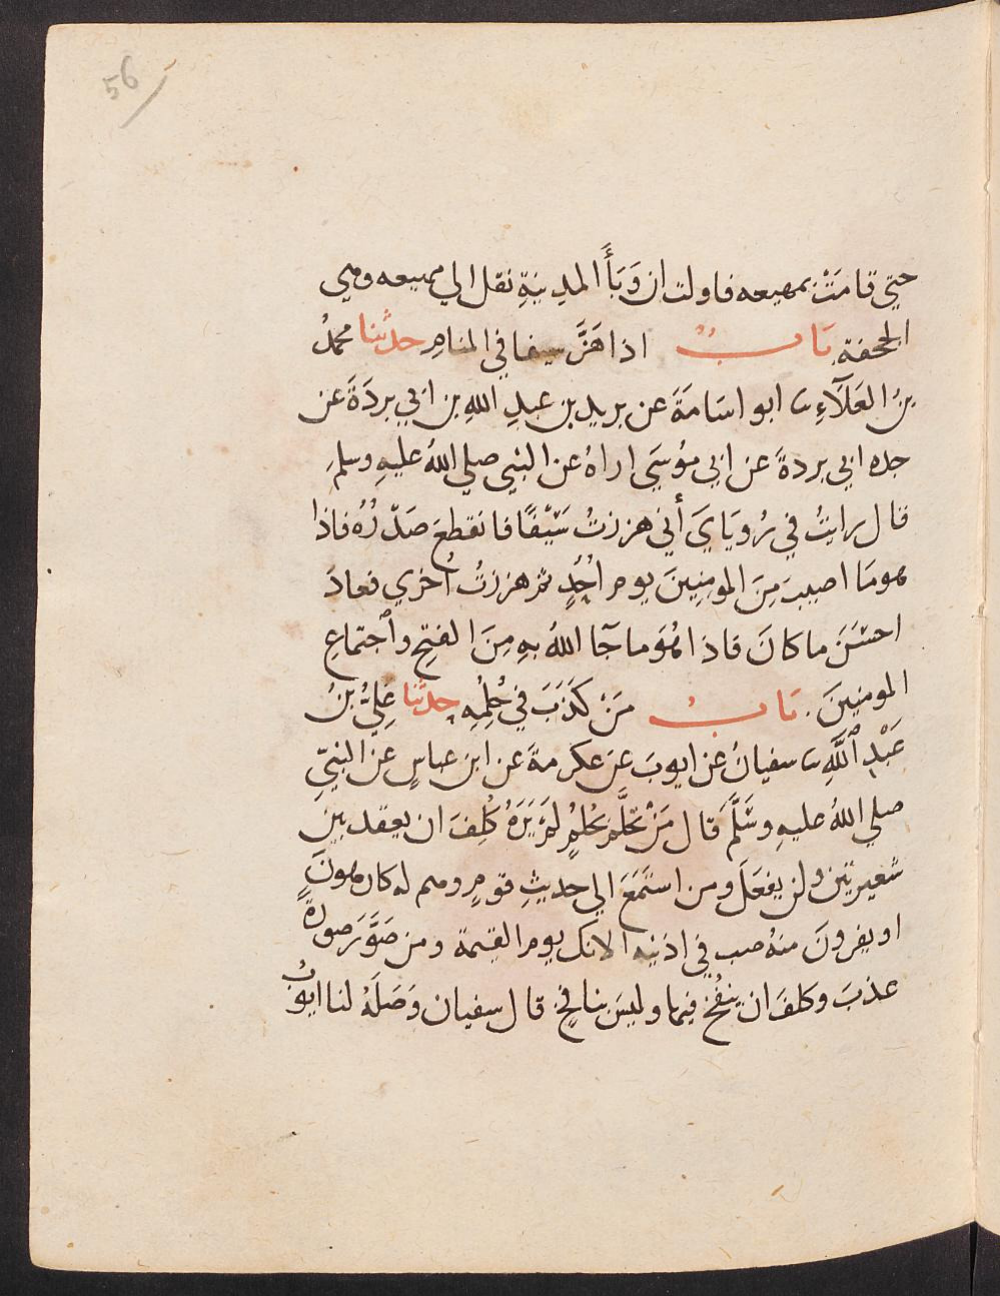 56
حتي قامَتْ بمهيعه فاولت ان وَبَأَ المدِينَةِ نقل الي مهيعه وهي
الجحفة. بَابٌ اذا هَزَّ سيفا في المنامِ حدثنا محمدُ
بنُ العَلَآءِ ثنا ابو اسَامَةَ عن بريد بن عبدِ اللهِ بن ابي بردَةَ عن
جده ابي بردةَ عن ابي موُسَي اراهُ عن النبي صلي اللهُ عليهِ وسلم
قال رايتُ في رُويَايَ أني هززتُ سَيْفًا فانقطع صَدْرُهُ فاذا
هومَا اصيبَ مِنَ المومِنِينَ يوم اُحُدٍ ثم هززتُ اُخرَي فعادَ
احسَنَ ما كانَ فاذا هُوَ ما جآ اللهُ بهِ مِنَ الفتحِ وٱجتماعِ
المومنينَ. بَابُ مَنْ كَذَبَ في حُلمِهِ حدثنا عَلِيُّ بنُ
عَبْدِ ٱللَّهِ ثنا سفيانُ عن ايوبَ عَن عكرمةَ عن ابن عباسٍ عن النبيِّ
صلي اللهُ عليهِ وسَلَّمَ قال مَنْ تحَلَّمَ بحُلمٍ لَمْ يَرَهُ كُلِفَ ان يعقد بين
شعيرتين ولن يفعَلَ ومن استَمَعَ الي حديثِ قومٍ وهم له كارهُونَ
او يفرونَ منهُ صب في اذنيه الانك يوم القيمة ومن صَوَّرَ صورةً
عذبَ وكلفَ ان ينفُخَ فيها وليسَ بنافخٍ قال سفيان وَصَلَهُ لنا ايوبُ